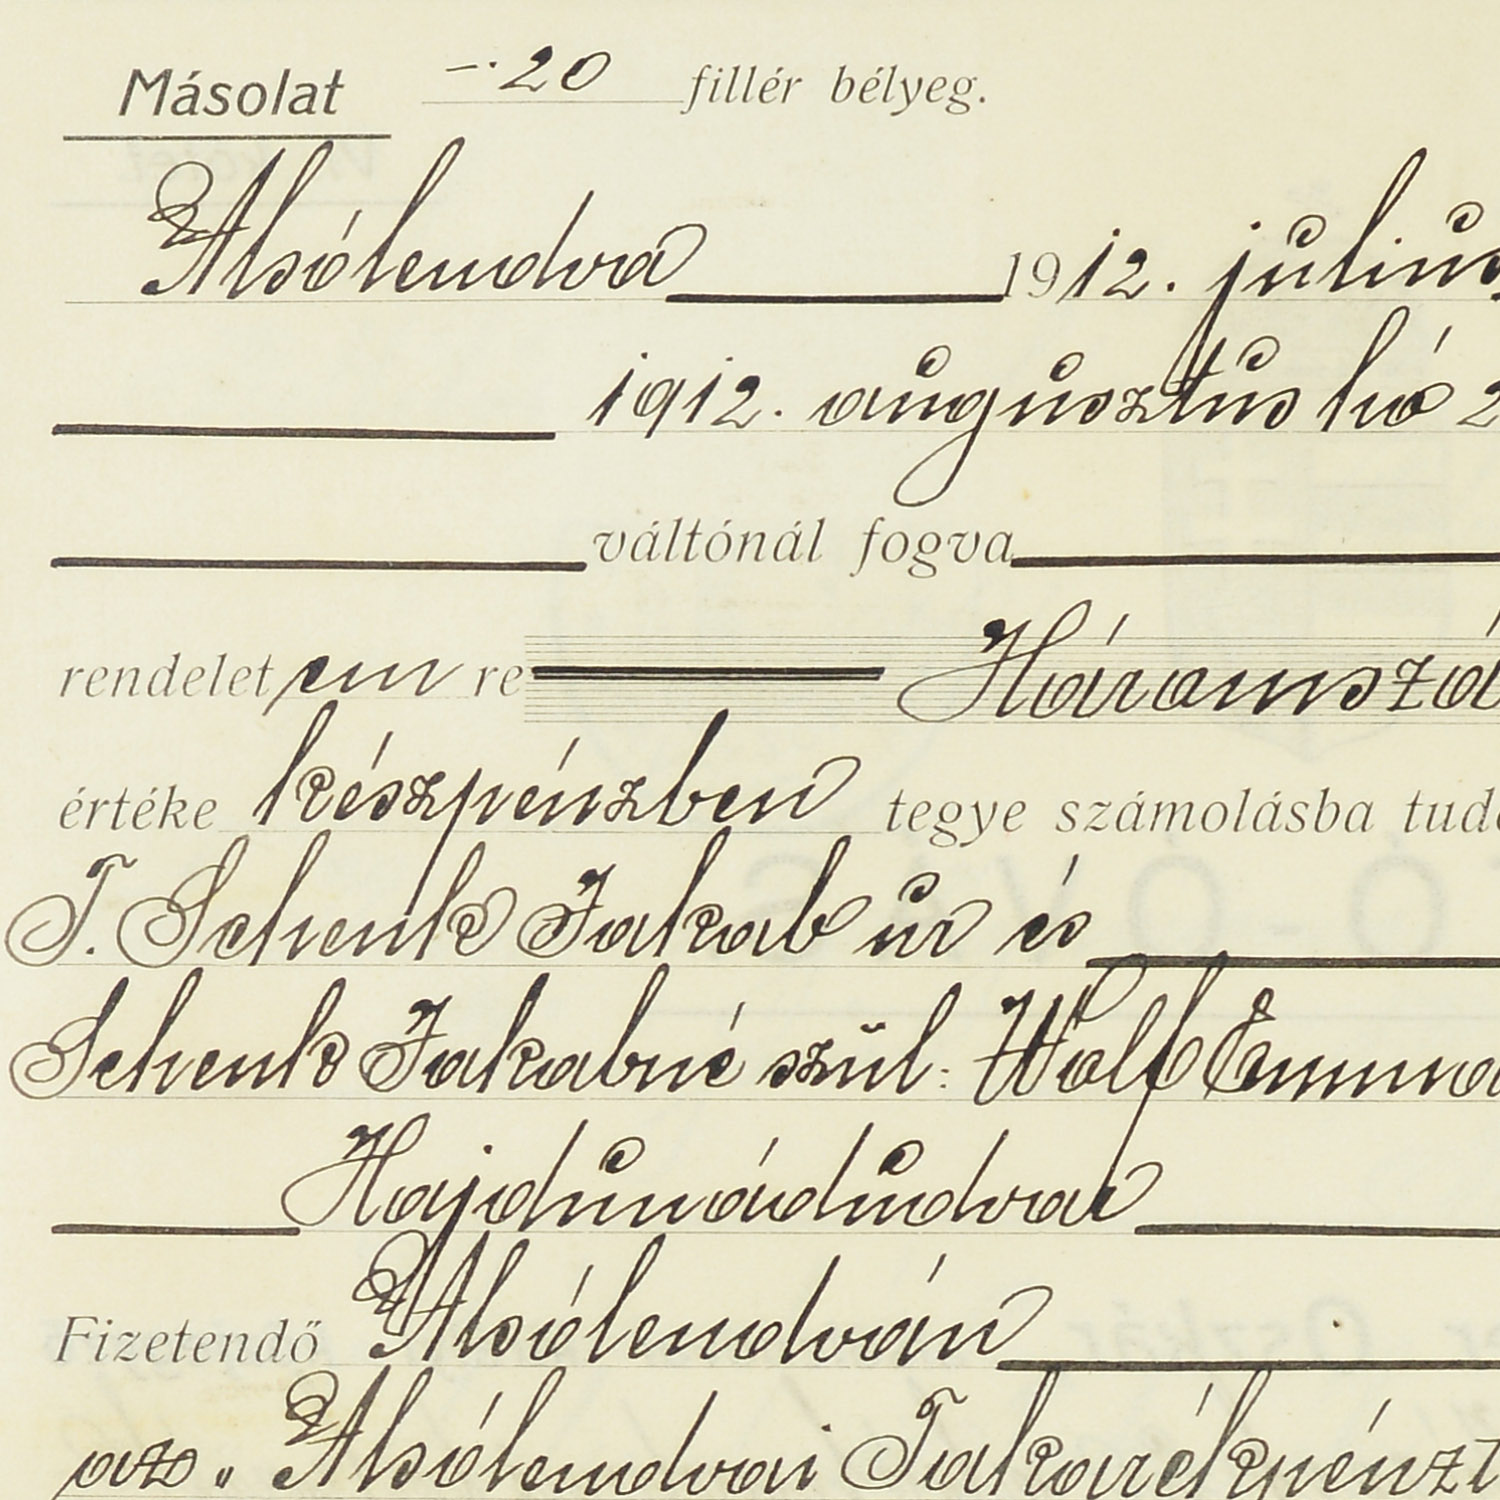 Másolat –·20 fillér bélyeg.
Alsólendva 1912. július
1912. augusztus hó 2
váltónál fogva
rendeletem re Háromszá
értéke készpénzben tegye számolásba tud
T. Schenk Jakab úr és
Schenk Jakabné szül: Wolf Emma
Hajdúnádudvar
Fizetendő Alsólendván
az „Alsólendvai Takarékpénzt